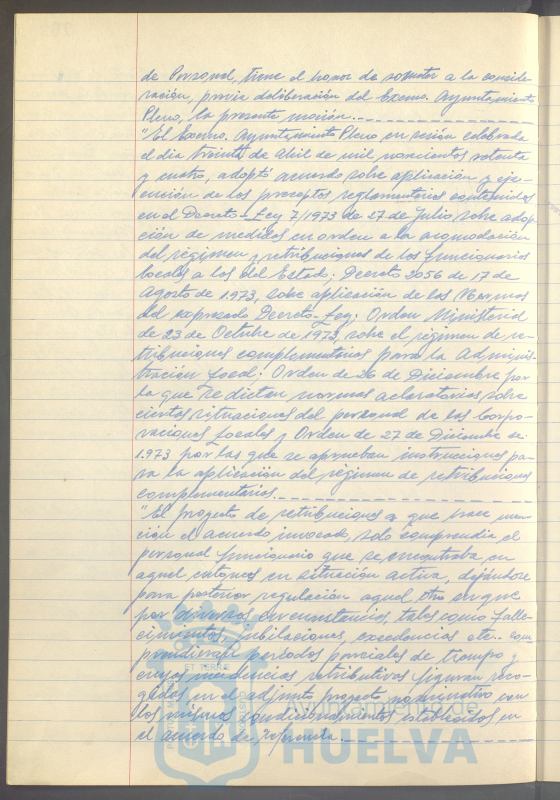 de Personal, tiene el honor de someter a la conside-
ración, previa deliberación del Excmo. Ayuntamiento
Pleno, la presente moción.
"El Excmo. Ayuntamiento Pleno en sesión celebrada
el día treinta de Abril de mil novecientos setenta
y cuatro, adoptó acuerdo sobre aplicación y eje-
cución de los preceptos reglamentarios contenidos
en el Decreto-Ley 7/1973 de 27 de Julio, sobre adop-
ción de medidas en orden a la acomodación
del régimen y retribuciones de los funcionarios
locales a los del Estado; Decreto 2056 de 17 de
Agosto de 1.973, sobre aplicación de las Normas
del expresado Decreto-Ley; Orden Ministerial
de 23 de Octubre de 1973, sobre el régimen de re-
tribuciones complementarias para la Adminis-
tración Local; Orden de 26 de Diciembre por
la que se dictan normas aclaratorias sobre
ciertas situaciones del personal de las Corpo-
raciones Locales y Orden de 27 de Diciembre de
1.973 por las que se aprueban instrucciones pa-
ra la aplicación del régimen de retribuciones
complementarias.
"El proyecto de retribuciones a que hace men-
ción el acuerdo invocado, solo comprendía el
personal funcionario que se encontraba en
aquel entonces en situación activa, dejándose
para posterior regulación aquel otro en que
por diversas circunstancias, tales como falle-
cimientos, jubilaciones, excedencias etc. com-
prendieran períodos parciales de tiempo y
cuyas incidencias retributivas figuran reco-
gidas en el adjunto proyecto nominativo con
los mismos condicionamientos establecidos en
el acuerdo de referencia.
ET TERRÆ
Ayuntamiento de
HUELVA